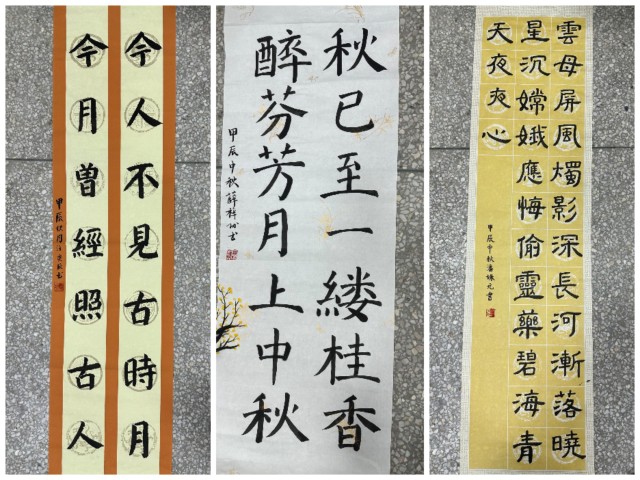 今人不見古時月
今月曾經照古人
甲辰秋月
秋已至一縷桂香
醉芬芳月上中秋
甲辰中秋薛梓书
雲母屏風燭影深長河漸落曉
星沉嫦娥應悔偷靈藥碧海青
天夜夜心
甲辰中秋潘元書